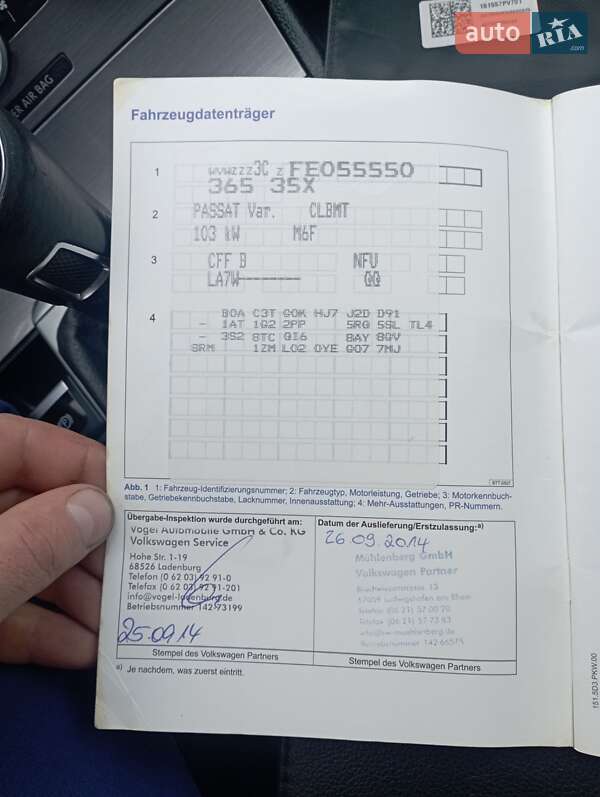 181557PV701
auto RIA .com
ER AIR BAG
Fahrzeugdatenträger
1 WVWZZZ3C Z FE055550
365 35X
2 PASSAT Var. CLBMT
103 kW M6F
3 CFF B NFU
LA7W-------- QG
4 B0A C3T G0K HJ7 J2D D91
- 1AT 1G2 2PP 5RG 5SL TL4
- 3S2 8TC QI6 8AY 8GV
8RM 1ZM L02 0YE G07 7MJ
Abb. 1 1: Fahrzeug-Identifizierungsnummer; 2: Fahrzeugtyp, Motorleistung, Getriebe; 3: Motorkennbuch-
stabe, Getriebekennbuchstabe, Lacknummer, Innenausstattung; 4: Mehr-Ausstattungen, PR-Nummern.
Übergabe-Inspektion wurde durchgeführt am:
Vogel Automobile GmbH & Co. KG
Volkswagen Service
Hohe Str. 1-19
68526 Ladenburg
Telefon (0 62 03) 92 91-0
Telefax (0 62 03) 92 91-201
info@vogel-ladenburg.de
Betriebsnummer 142-73199
25.09.14
Stempel des Volkswagen Partners
Datum der Auslieferung/Erstzulassung:a)
26.09.2014
Mühlenberg GmbH
Volkswagen Partner
67059 Ludwigshafen am Rhein
Telefon (06 21) 57 00 20
Telefax (06 21) 57 73 83
Betriebsnummer 142-66575
Stempel des Volkswagen Partners
a) Je nachdem, was zuerst eintritt.
151.5D3.PKW.00